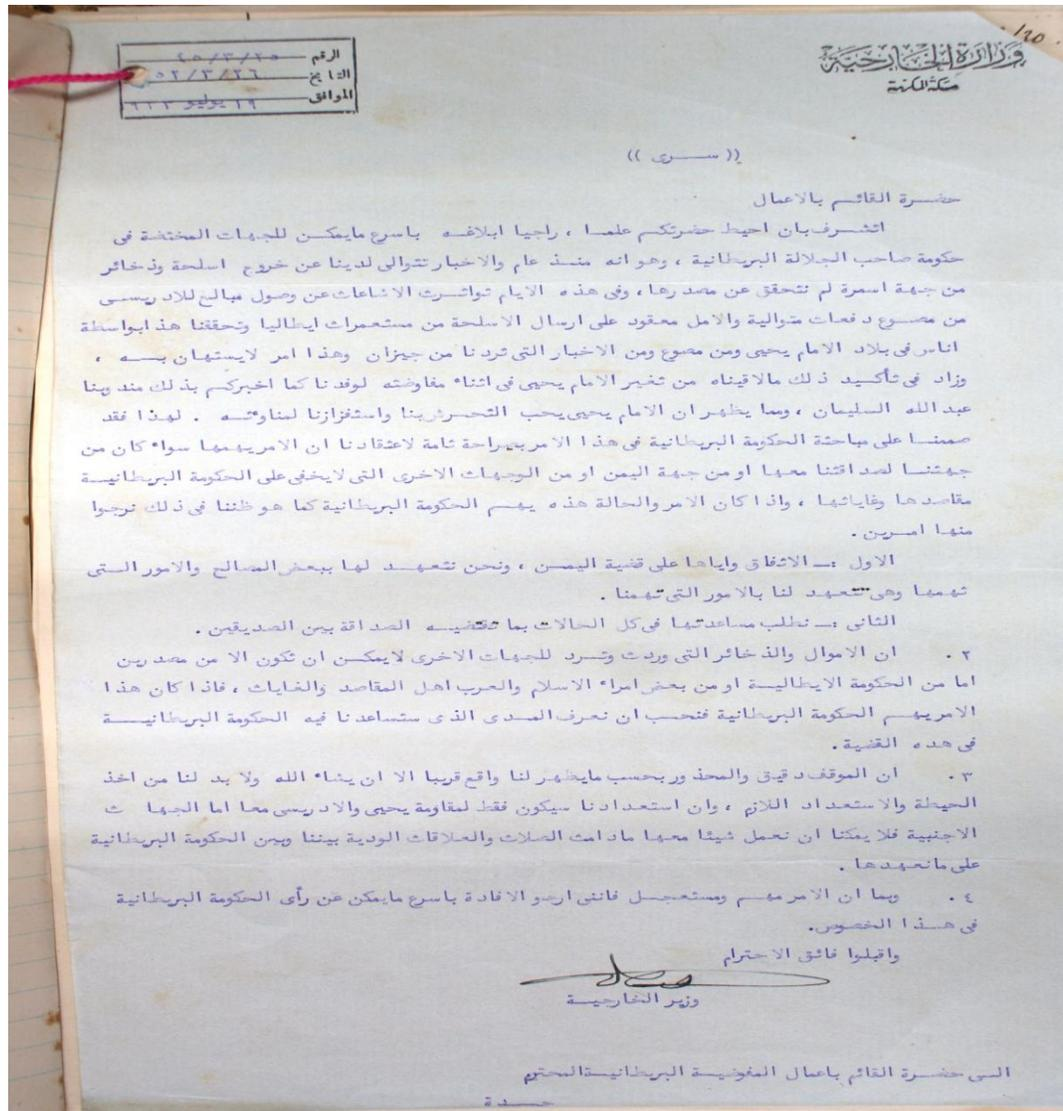 وزارة الخارجية
مكة المكرمة
الرقم ٤٥/٣/٢٥
التاريخ ٥٢/٣/٢٦
الموافق ١٩ يوليو ٩٣٣
(( سرى ))
حضرة القائم بالاعمال
اتشرف بان احيط حضرتكم علما ، راجيا ابلاغه باسرع مايمكن للجهات المختصة فى
حكومة صاحب الجلالة البريطانية ، وهو انه منذ عام والاخبار تتوالى لدينا عن خروج اسلحة وذخائر
من جهة اسمرة لم نتحقق عن مصدرها ، وفى هذه الايام تواترت الاشاعات عن وصول مبالغ للادريسى
من مصوع دفعات متوالية والامل معقود على ارسال الاسلحة من مستعمرات ايطاليا وتحققنا هذا بواسطة
اناس فى بلاد الامام يحيى ومن مصوع ومن الاخبار التى تردنا من جيزان وهذا امر لايستهان بـه ،
وزاد فى تأكيد ذلك مالاقيناه من تغير الامام يحيى فى اثناء مفاوضته لوفدنا كما اخبركم بذلك مندوبنا
عبد الله السليمان ، ومما يظهر ان الامام يحيى يحب التحرش بنا واستفزازنا لمناوئته . لهذا فقد
صممنا على مباحثة الحكومة البريطانية فى هذا الامر بصراحة تامة لاعتقادنا ان الامر يهمها سواء كان من
جهتنا لصداقتنا معها او من جهة اليمن او من الوجهات الاخرى التى لايخفى على الحكومة البريطانية
مقاصدها وغاياتها ، واذا كان الامر والحالة هذه يهم الحكومة البريطانية كما هو ظننا فى ذلك نرجوا
منها امرين .
الاول :ـ الاتفاق واياها على قضية اليمن ، ونحن نتعهد لها ببعض المصالح والامور التى
تهمها وهى تتعهد لنا بالامور التى تهمنا .
الثانى :ـ نطلب مساعدتها فى كل الحالات بما تقتضيه الصداقة بين الصديقين .
٢ . ان الاموال والذخائر التى وردت وترد للجهات الاخرى لايمكن ان تكون الا من مصدرين
اما من الحكومة الايطالية او من بعض امراء الاسلام والعرب اهل المقاصد والغايات ، فاذا كان هذا
الامر يهم الحكومة البريطانية فنحب ان نعرف المدى الذى ستساعدنا فيه الحكومة البريطانية
فى هده القضية .
٣ . ان الموقف دقيق والمحذور بحسب مايظهر لنا واقع قريبا الا ان يشاء الله ولا بد لنا من اخذ
الحيطة والاستعداد اللازم ، وان استعدادنا سيكون فقط لمقاومة يحيى والادريسى معا اما الجهات
الاجنبية فلا يمكنا ان نعمل شيئا معها مادامت الصلات والعلاقات الودية بيننا وبين الحكومة البريطانية
على مانعهدها .
٤ . وبما ان الامر مهم ومستعجل فاننى ارجو الافادة باسرع مايمكن عن رأى الحكومة البريطانية
فى هذا الخصوص .
واقبلوا فائق الاحترام
وزير الخارجية
الى حضرة القائم باعمال المفوضية البريطانية المحترم
جدة